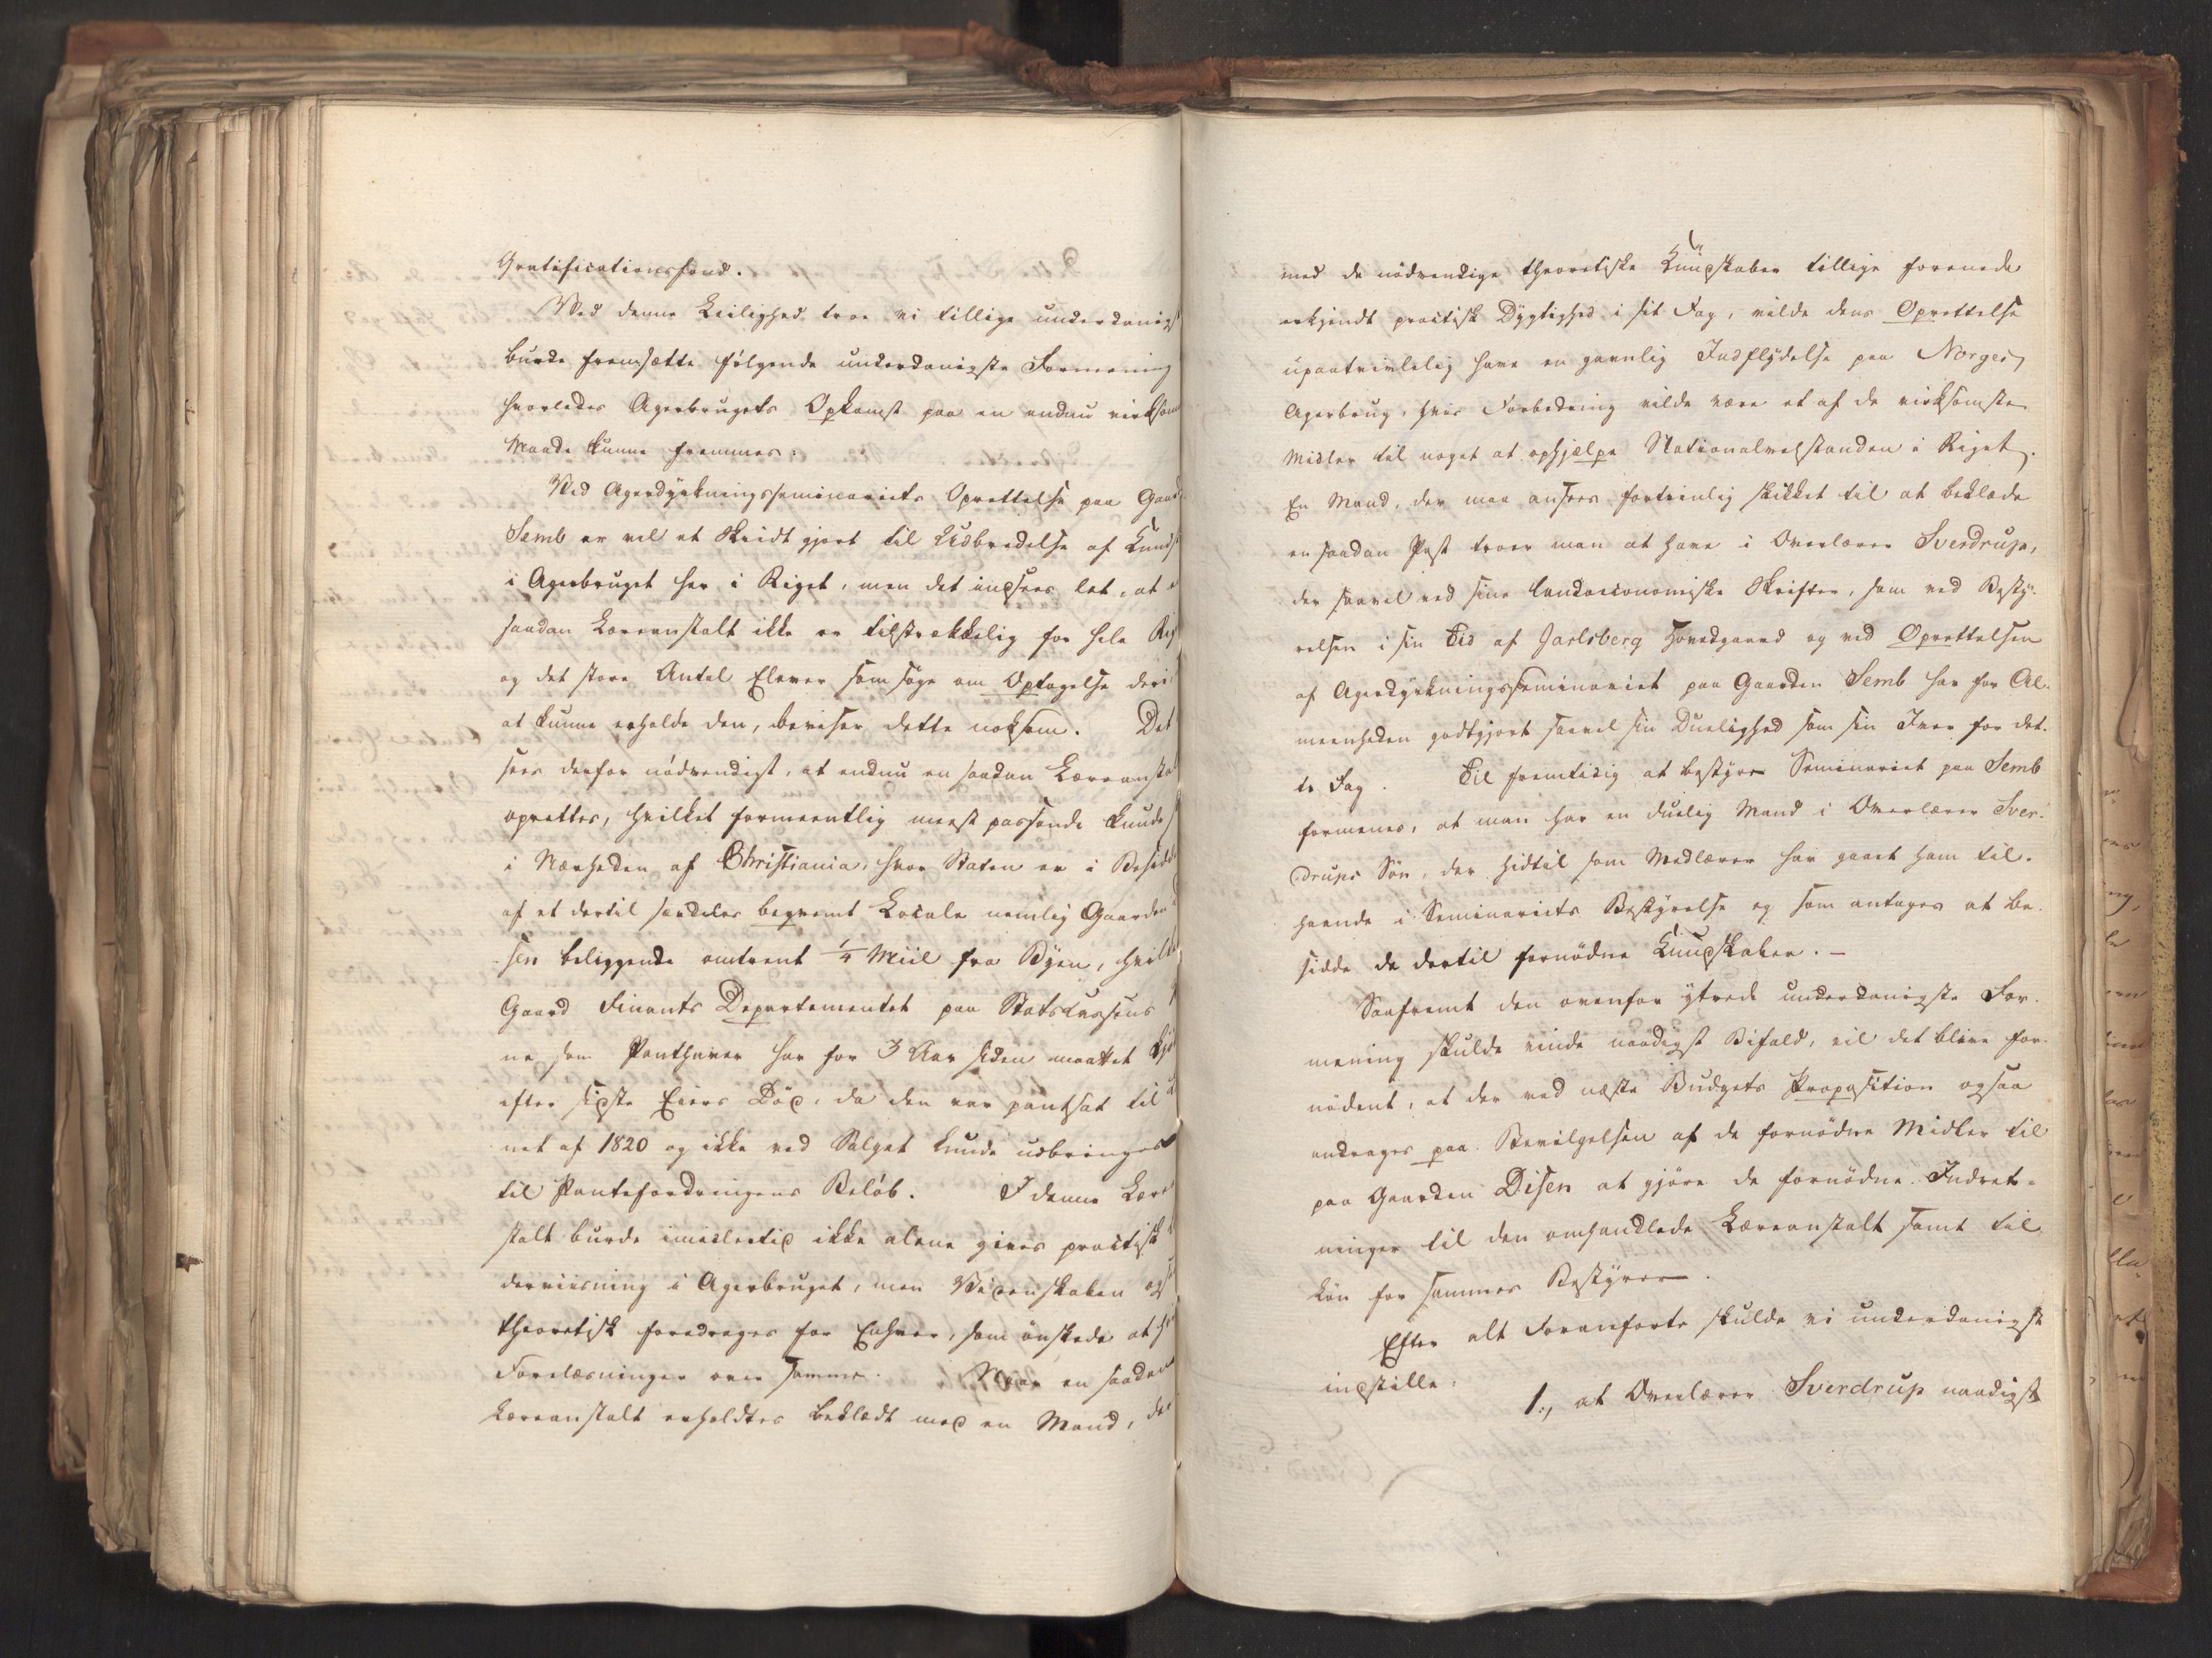 Gratificationsfond.
Ved denne Leilighed troe vi tillige underdanigst
burde fremsætte følgende underdanigste Formening
hvorledes Agerbrugets Opkomst paa en endnu virksom
Maade kunne fremmes:
Ved Agerdyrkningsseminariets Oprettelse paa Gaard
Semb er vel et Skridt gjort til Udbredelse af Kunds
i Agerbruget her i Riget, men det indsees let, at e
saadan Læreanstalt ikke er tilstrækkelig for hele Rig
og det store Antal Elever som søge om Optagelse deri
at kunne erholde den, beviser dette noksom. Det
sees derfor nødvendigt, at endnu en saadan Læreansta
oprettes, hvilket formeentlig meest passende kunde s
i Nærheden af Christiania, hvor Staten er i Besidde
af et dertil særdeles beqvemt Locale nemlig Gaarden
sen beliggende omtrent 1/4 Miil fra Byen, hvilk
Gaard Finants Departementet paa Statskassens
ne som Panthaver har for 3 Aar siden maattet kjø
efter sidste Eiers Død, da den var pantsat til
net af 1820 og ikke ved Salget kunde udbringes
til Pantefordringens Beløb. I denne Lære
stalt burde imidlertid ikke alene gives practisk
derviisning i Agerbruget, men Videnskaben ogs
theoretisk foredrages for Enhver, som ønskede at h
Forelæsninger over samme. Naar en saadan
Læreanstalt erholdtes beklædt med en Mand, der
med de nødvendige theoretiske Kundskaber tillige forenede
erkjendt practisk Dygtighed i sit Fag, vilde dens Oprettelse
upaatvivlelig have en gavnlig Indflydelse paa Norges
Agerbrug, hvis Forbedring vilde være et af de virksomste
Midler til noget at ophjælpe Nationalvelstanden i Riget.
En Mand, der maa ansees fortrinlig skikket til at beklæde
en saadan Post troer man at have i Overlærer Sverdrup,
der saavel ved sine landoeconomiske Skrifter, som ved Besty-
relsen i sin Tid af Jarlsberg Hovedgaard og ved Oprettelsen
af Agerdyrkningsseminariet paa Gaarden Semb har for Al-
meenheden godtgjort saavel sin Duelighed som sin Iver for det-
te Fag. Til fremtidig at bestyre Seminariet paa Semb
formenes, at man har en duelig Mand i Overlærer Sver-
drups Søn, der hidtil som Medlærer har gaaet ham til-
haande i Seminariets Bestyrelse og som antages at be-
sidde de dertil fornødne Kundskaber. –
Saafremt den ovenfor yttrede underdanigste For-
mening skulde vinde naadigst Bifald, vil det blive for-
nødent, at der ved næste Budgets Proposition ogsaa
andrages paa Bevilgelsen af de fornødne Midler til
paa Gaarden Disen at gjøre de fornødne Indret-
ninger til den omhandlede Læreanstalt samt til
Løn for sammes Bestyrer.
Efter alt Foranførte skulde vi underdanigst
indstille:
1., at Overlærer Sverdrup naadigst